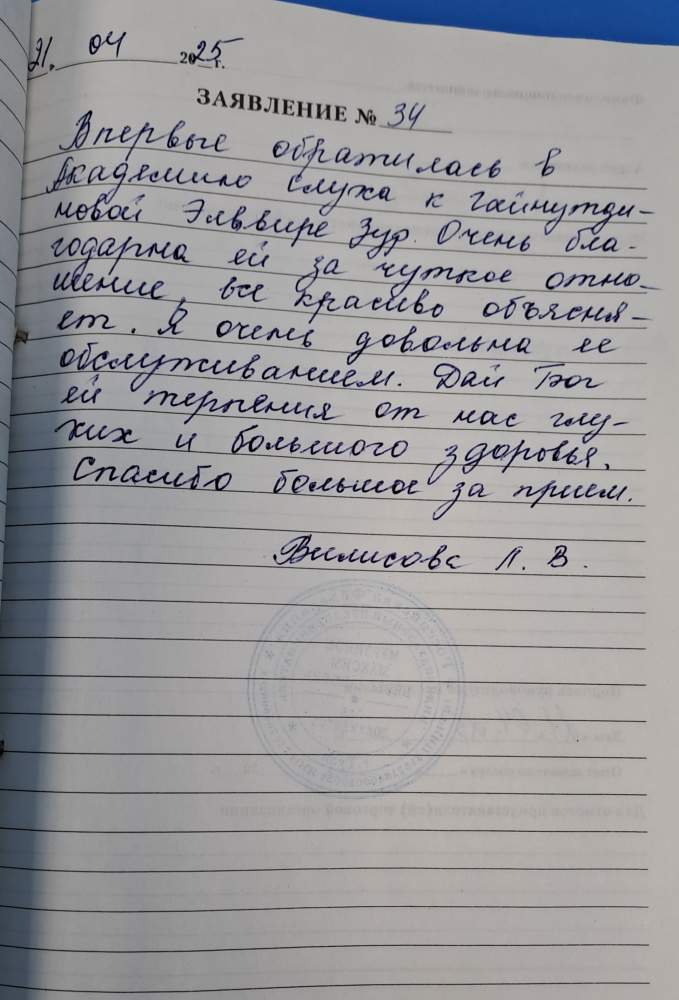 21. 04 2025 г.
ЗАЯВЛЕНИЕ № 34
Впервые обратилась в
Академию слуха к Гайнутди-
новой Эльвире Зуф. Очень бла-
годарна ей за чуткое отно-
шение, все красиво объясня-
ет. Я очень довольна ее
обслуживанием. Дай Бог
ей терпения от нас глу-
хих и большого здоровья.
Спасибо большое за прием.
Вилисова Л. В.